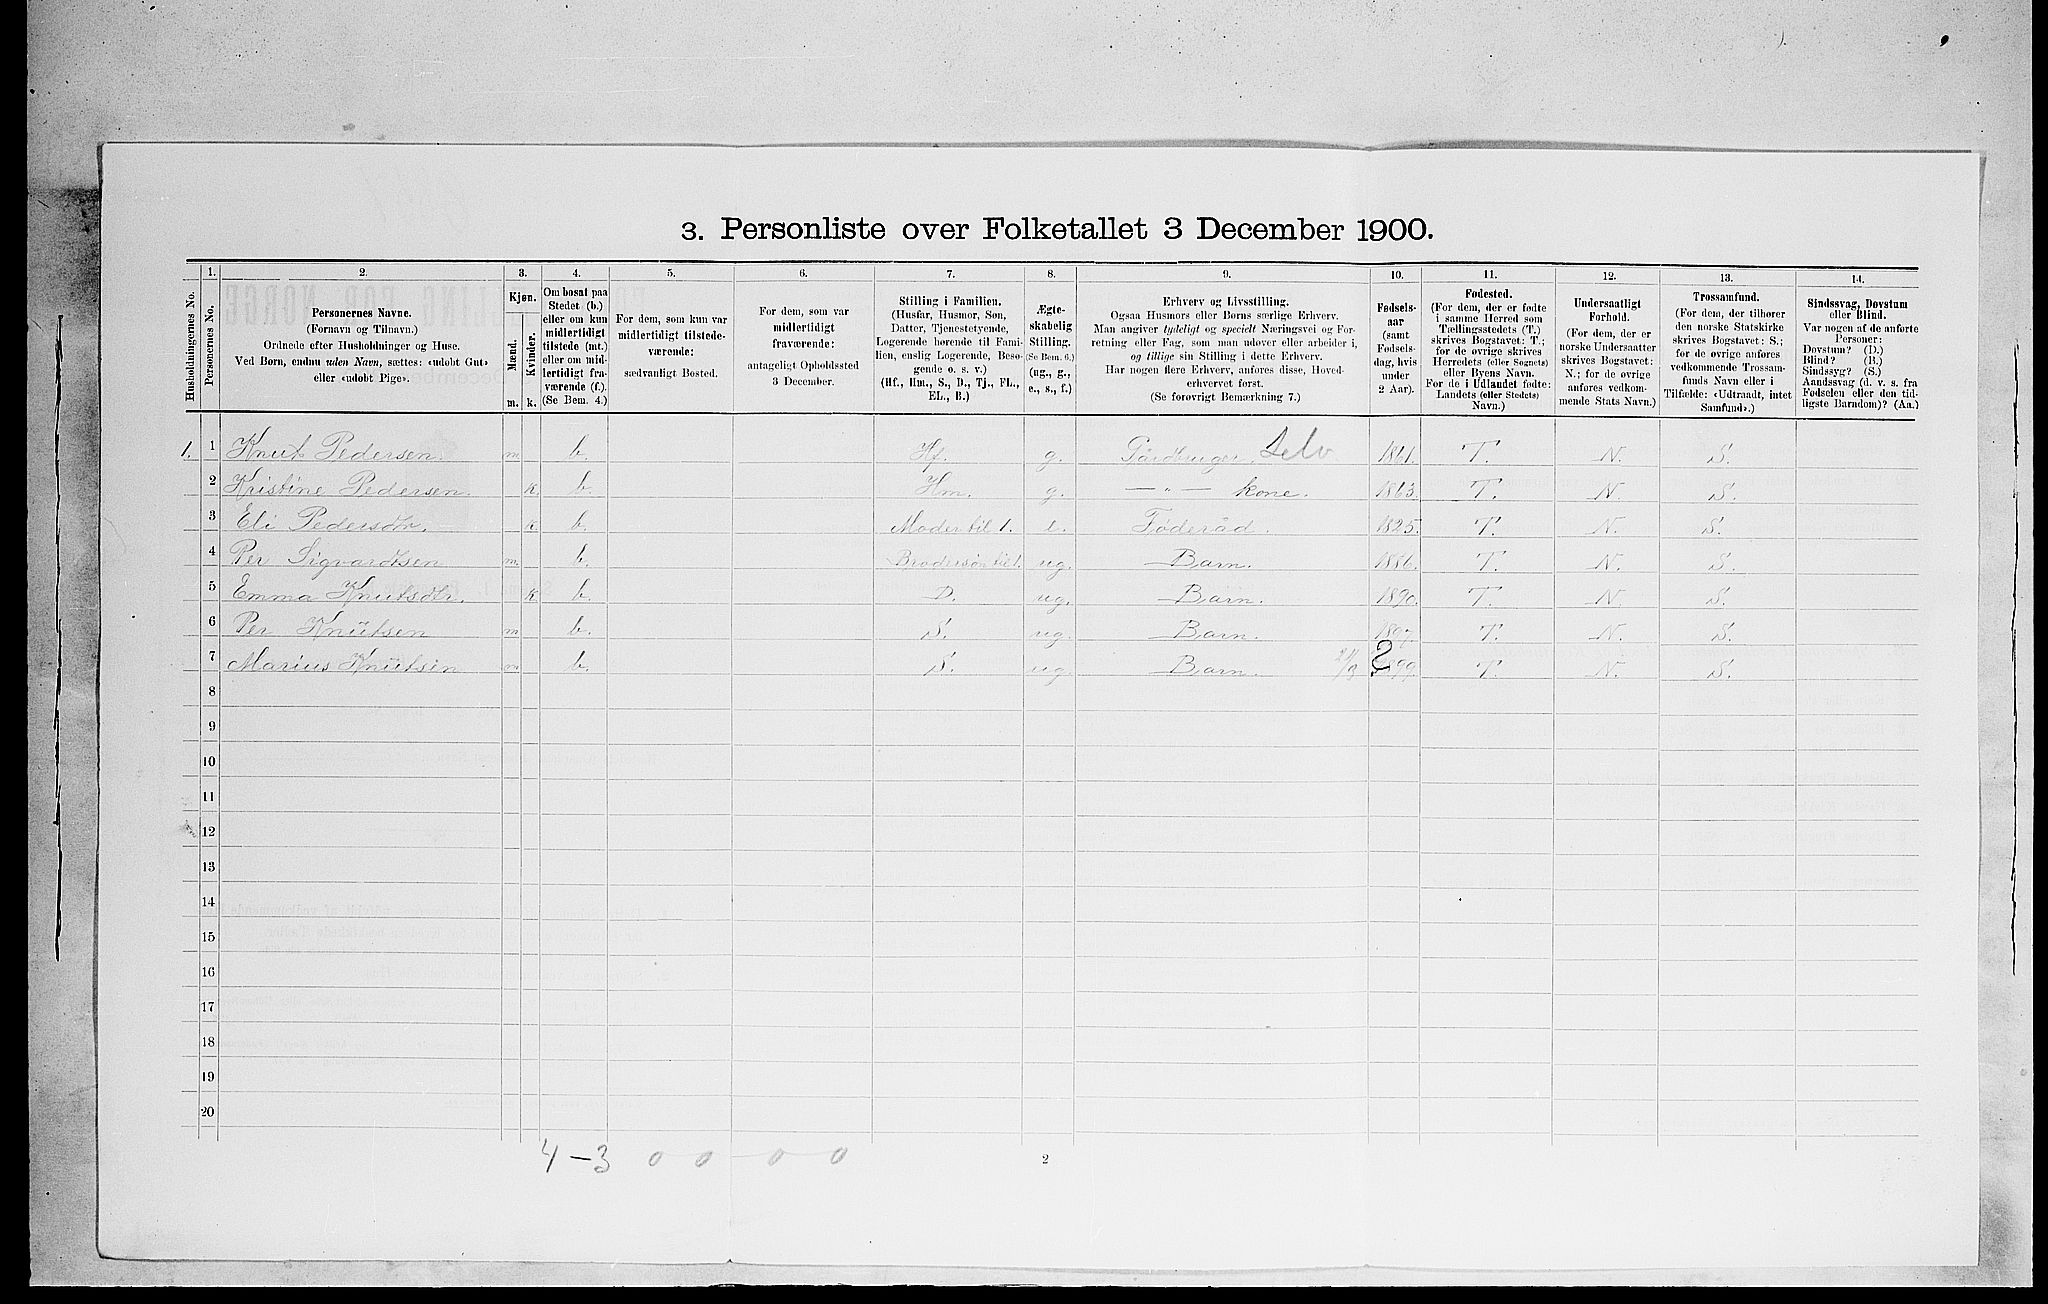 3. Personliste over Folketallet 3 December 1900.
1. 2. 3. 4. 5. 6. 7. 8. 9. 10. 11. 12. 13. 14.
Husholdningernes No.
Personernes No.
Personernes Navne.
(Fornavn og Tilnavn.)
Ordnede efter Husholdninger og Huse.
Ved Børn, endnu uden Navn, sættes: «udøbt Gut»
eller «udøbt Pige».
Kjøn.
Mænd.
Kvinder.
m. k.
Om bosat paa
Stedet (b.)
eller om kun
midlertidigt
tilstede (mt.)
eller om mid-
lertidigt fra-
værende (f.)
(Se Bem. 4.)
For dem, som kun var
midlertidigt tilstede-
værende:
sædvanligt Bosted.
For dem, som var
midlertidigt
fraværende:
antageligt Opholdssted
3 December.
Stilling i Familien.
(Husfar, Husmor, Søn,
Datter, Tjenestetyende,
Logerende hørende til Fami-
lien, enslig Logerende, Besø-
gende o. s. v.)
(Hf., Hm., S., D., Tj., FL.,
EL., B.)
Ægte-
skabelig
Stilling.
(Se Bem. 6.)
(ug., g.,
e., s., f.)
Erhverv og Livsstilling.
Ogsaa Husmors eller Børns særlige Erhverv.
Man angiver tydeligt og specielt Næringsvei og For-
retning eller Fag, som man udøver eller arbeider i,
og tillige sin Stilling i dette Erhverv.
Har nogen flere Erhverv, anføres disse, Hoved-
erhvervet først.
(Se forøvrigt Bemærkning 7.)
Fødsels-
aar
(samt
Fødsels-
dag, hvis
under
2 Aar).
Fødested.
(For dem, der er fødte
i samme Herred som
Tællingsstedets (T.)
skrives Bogstavet: T.;
for de øvrige skrives
Herredets (eller Sognets)
eller Byens Navn.
For de i Udlandet fødte:
Landets (eller Stedets)
Navn.)
Undersaatligt
Forhold.
(For dem, der er
norske Undersaatter
skrives Bogstavet:
N.; for de øvrige
anføres vedkom-
mende Stats Navn.)
Trossamfund.
(For dem, der tilhører
den norske Statskirke
skrives Bogstavet: S.;
for de øvrige anføres
vedkommende Trossam-
funds Navn eller i
Tilfælde: «Udtraadt, intet
Samfund».)
Sindssvag, Døvstum
eller Blind.
Var nogen af de anførte
Personer:
Døvstum? (D.)
Blind? (B.)
Sindssyg? (S.)
Aandssvag (d. v. s. fra
Fødselen eller den tid-
ligste Barndom)? (Aa.)
1. 1 Knut Pedersen. m. b. Hf. g. Gårdbruger. Selv 1861. T. N. S.
2 Kristine Pedersen. k. b. Hm. g. — „ — kone. 1863. T. N. S.
3 Eli Pedersdtr. k. b. Moder til 1. e. Føderåd. 1825. T. N. S.
4 Per Sigvardtsen m. b. Brodersøn til 1. ug. Barn. 1886. T. N. S.
5 Emma Knutsdtr. k b. D. ug. Barn. 1890. T. N. S.
6 Per Knutsen m b. S. ug. Barn. 1897. T. N. S.
7 Marius Knutsen m b. S. ug. Barn. 1899. T. N. S.
8
9
10
11
12
13
14
15
16
17
18
19
20
4 – 3 0 0 – 0 0
2